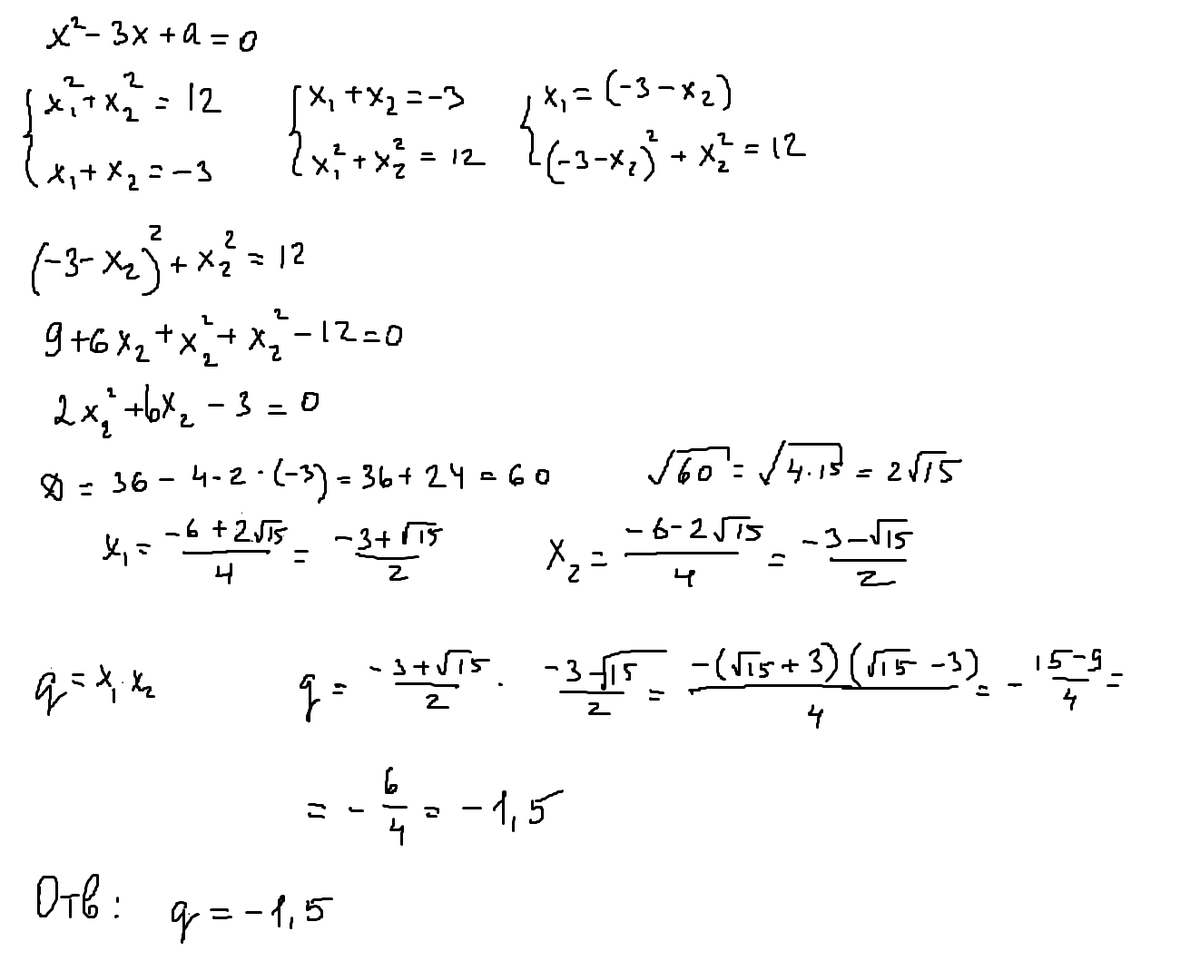 x² - 3x + a = 0
{ x₁² + x₂² = 12
x₁ + x₂ = -3
{ x₁ + x₂ = -3
x₁² + x₂² = 12
{ x₁ = (-3 - x₂)
(-3 - x₂)² + x₂² = 12
(-3 - x₂)² + x₂² = 12
9 + 6x₂ + x₂² + x₂² - 12 = 0
2x₂² + 6x₂ - 3 = 0
D = 36 - 4·2·(-3) = 36 + 24 = 60 √60 = √4·15 = 2√15
x₁ = (-6 + 2√15)/4 = (-3 + √15)/2 x₂ = (-6 - 2√15)/4 = (-3 - √15)/2
q = x₁·x₂ q = (-3 + √15)/2 · (-3 - √15)/2 = -(√15 + 3)(√15 - 3)/4 = - (15 - 9)/4 =
= - 6/4 = -1,5
Отв: q = -1,5